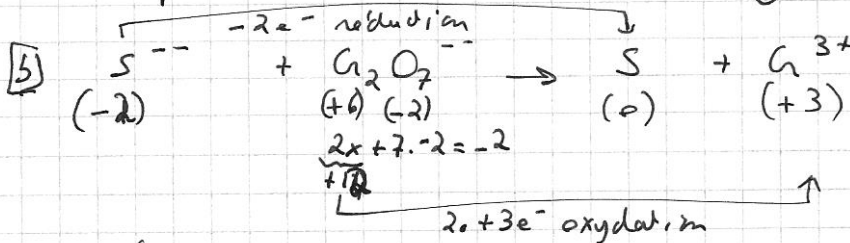 -2e⁻ réduction
b) S⁻⁻ + Cr₂O₇⁻⁻ → S + Cr³⁺
(-2) (+6) (-2) (0) (+3)
2x + 7.-2 = -2
+12
2. +3e⁻ oxydation